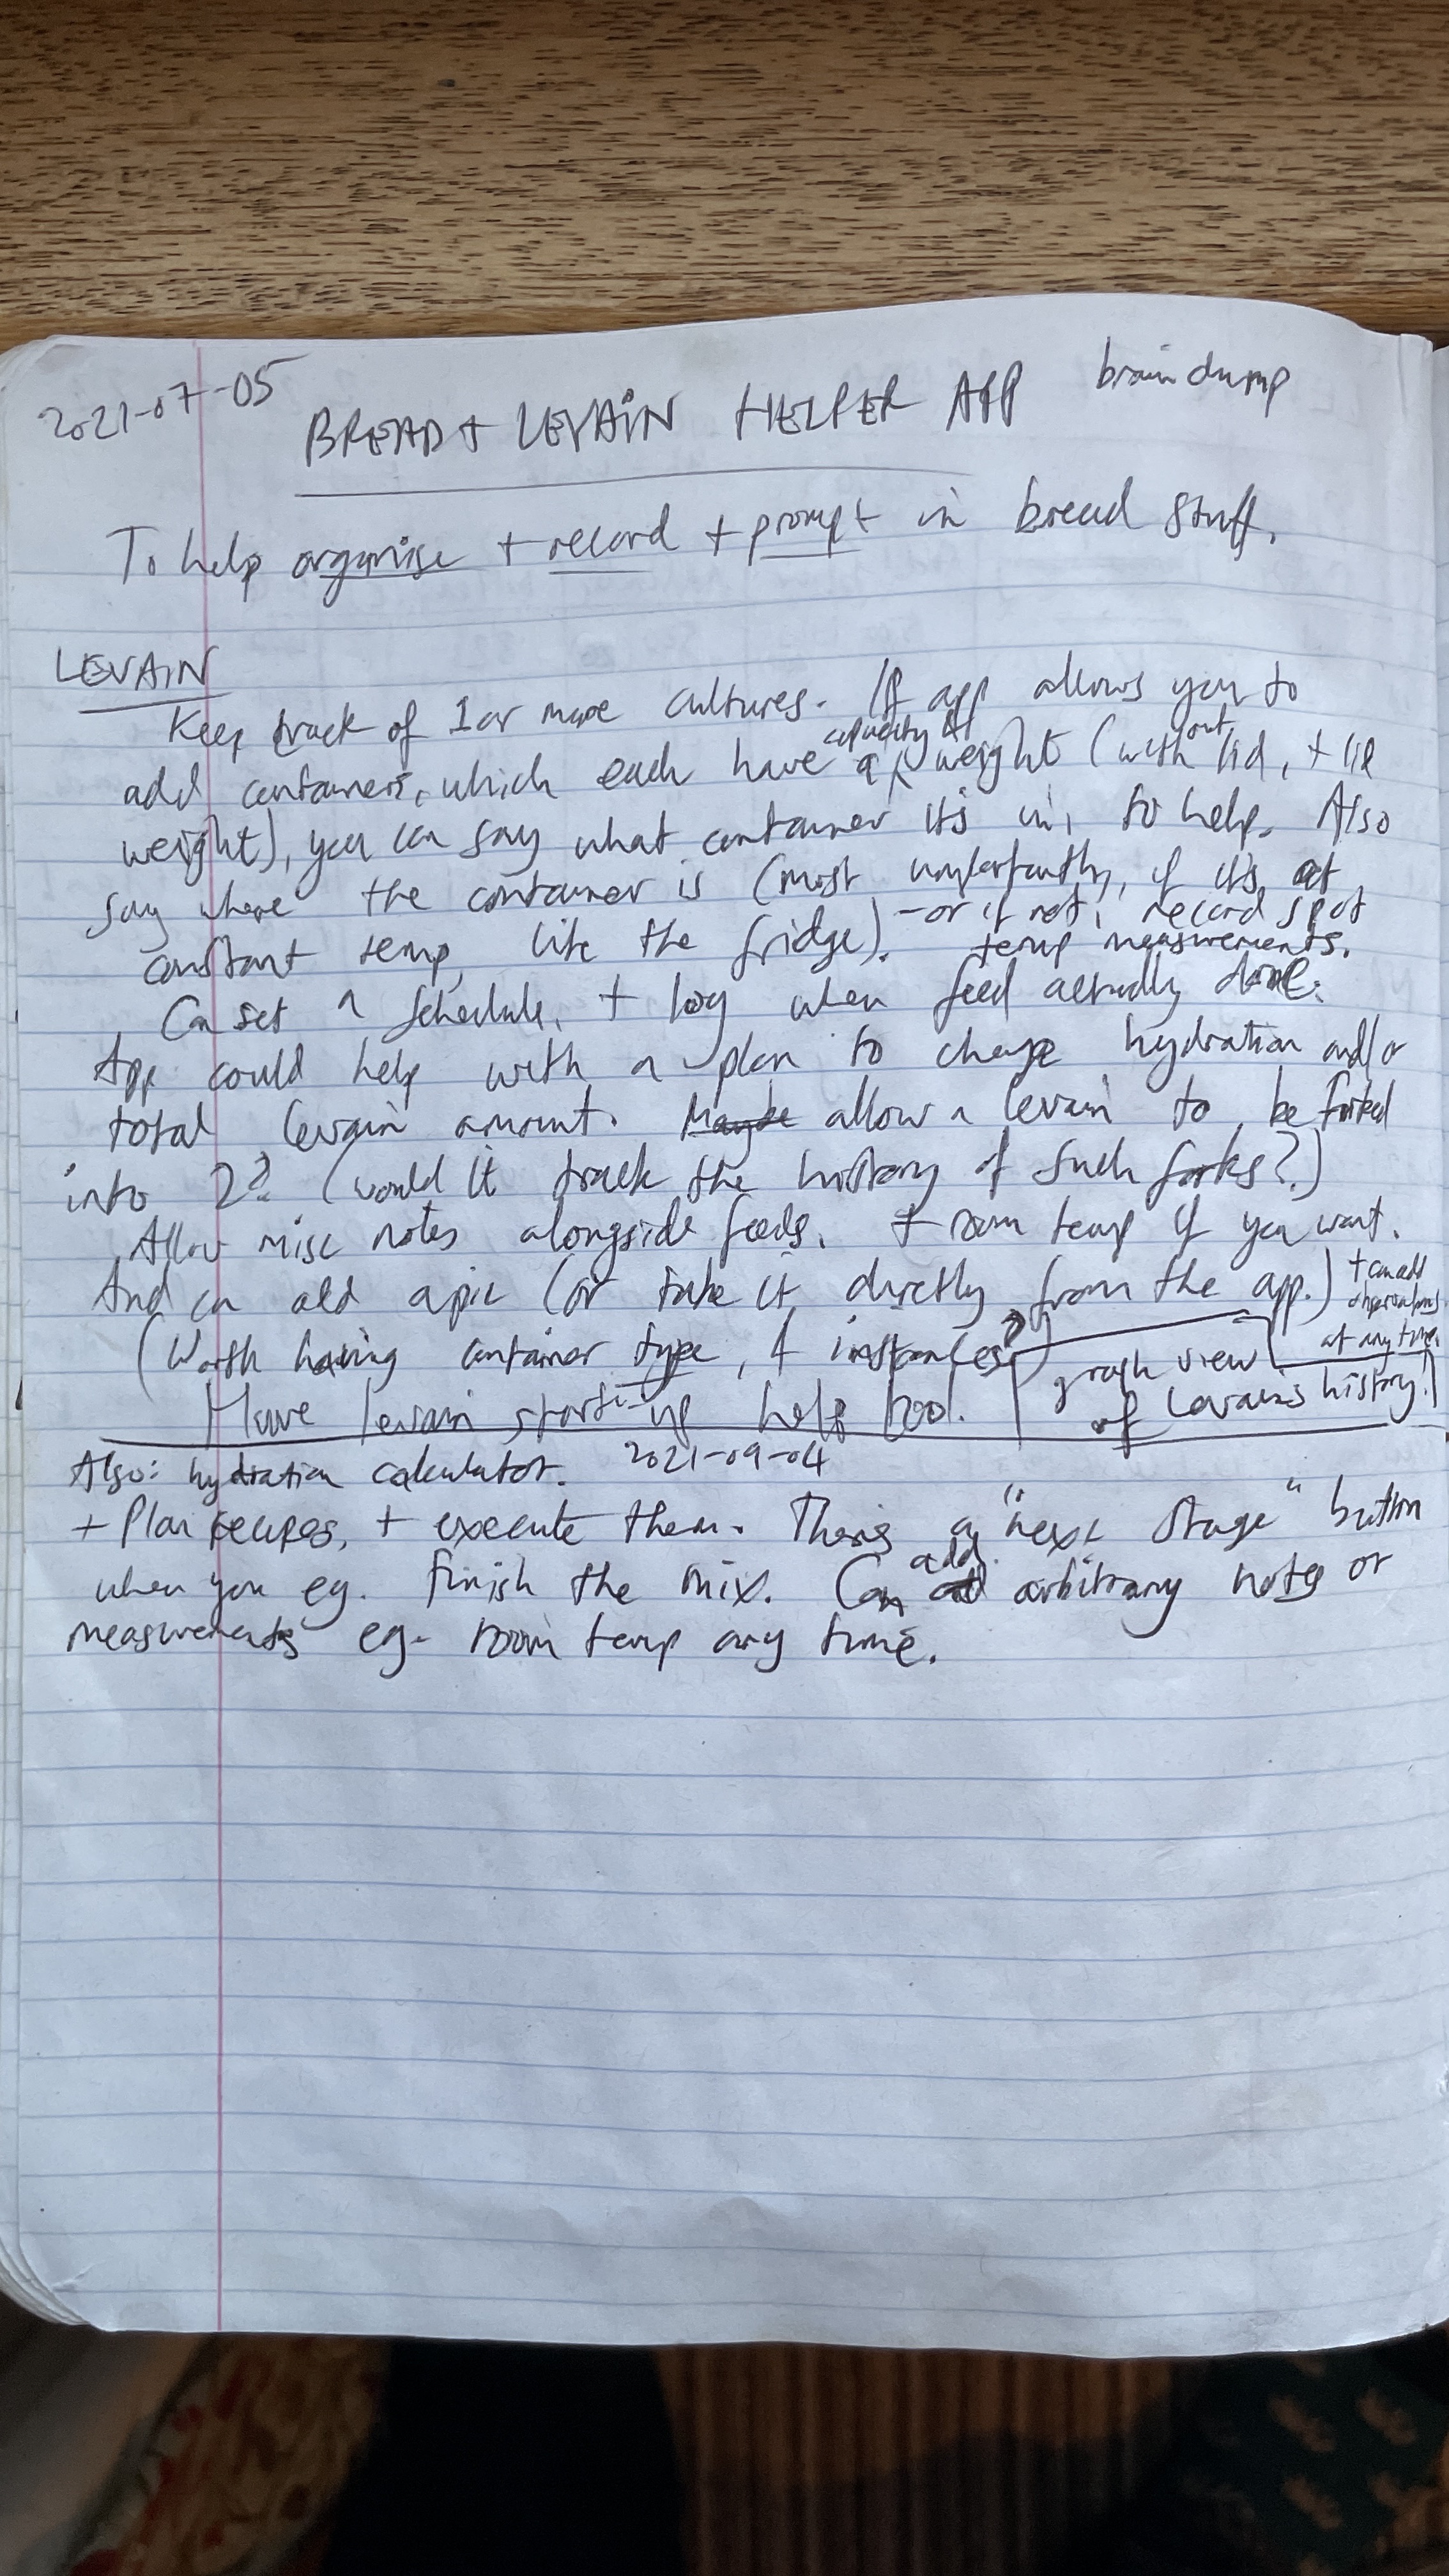 2021-07-05
BREAD + LEVAIN HELPER APP braindump
To help organise + record + prompt in bread stuff.
LEVAIN
Keep track of 1 or more cultures. If app allows you to
add containers, which each have a capacity & weight (without lid, + lid
weight), you can say what container it's in, to help. Also
say where the container is (most importantly, if it's at
constant temp, like the fridge). - or if not, record spot
temp measurements.
Can set a schedule, + log when feed actually done.
App could help with a plan to change hydration and/or
total levain amount. Maybe allow a levain to be forked
into 2? (would it track the history of such forks?)
Allow misc notes alongside feeds. + room temp if you want.
And can add a pic (or take it directly from the app.)
+ can add
observations
at any time
(Worth having container type, & instances?)
graph view
of levain's history!
Have levain start-up help too.
Also: hydration calculator. 2021-09-04
+ Plan recipes, + execute them. There's a "next stage" button
when you eg. finish the mix. Can add arbitrary notes or
measurements eg. room temp any time.